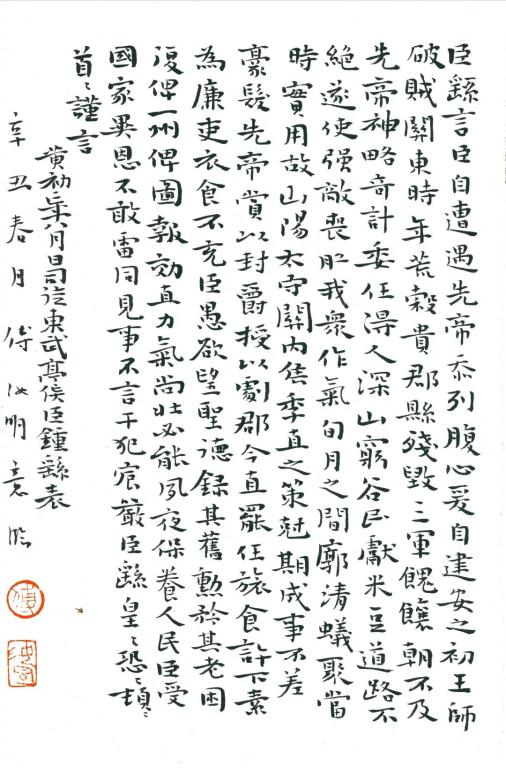 臣繇言臣自遭遇先帝忝列腹心爰自建安之初王師
破賊關東時年荒穀貴郡縣殘毀三軍餽饟朝不及
先帝神略奇計委任得人深山窮谷民獻米豆道路不
絕遂使强敵喪膽我衆作氣旬月之間廓清蟻聚當
時實用故山陽太守關內侯季直之策尅期成事不差
豪髮先帝賞以封爵授以劇郡今直罷任旅食許下素
為廉吏衣食不充臣愚欲望聖德録其舊勳矜其老困
復俾一州俾圖報効直力氣尚壯必能夙夜保養人民臣受
國家異恩不敢雷同見事不言干犯宸嚴臣繇皇〻恐〻頓〻
首〻謹言
黄初二年八月日司徒東武亭侯臣鍾繇表
辛丑春月 明意臨